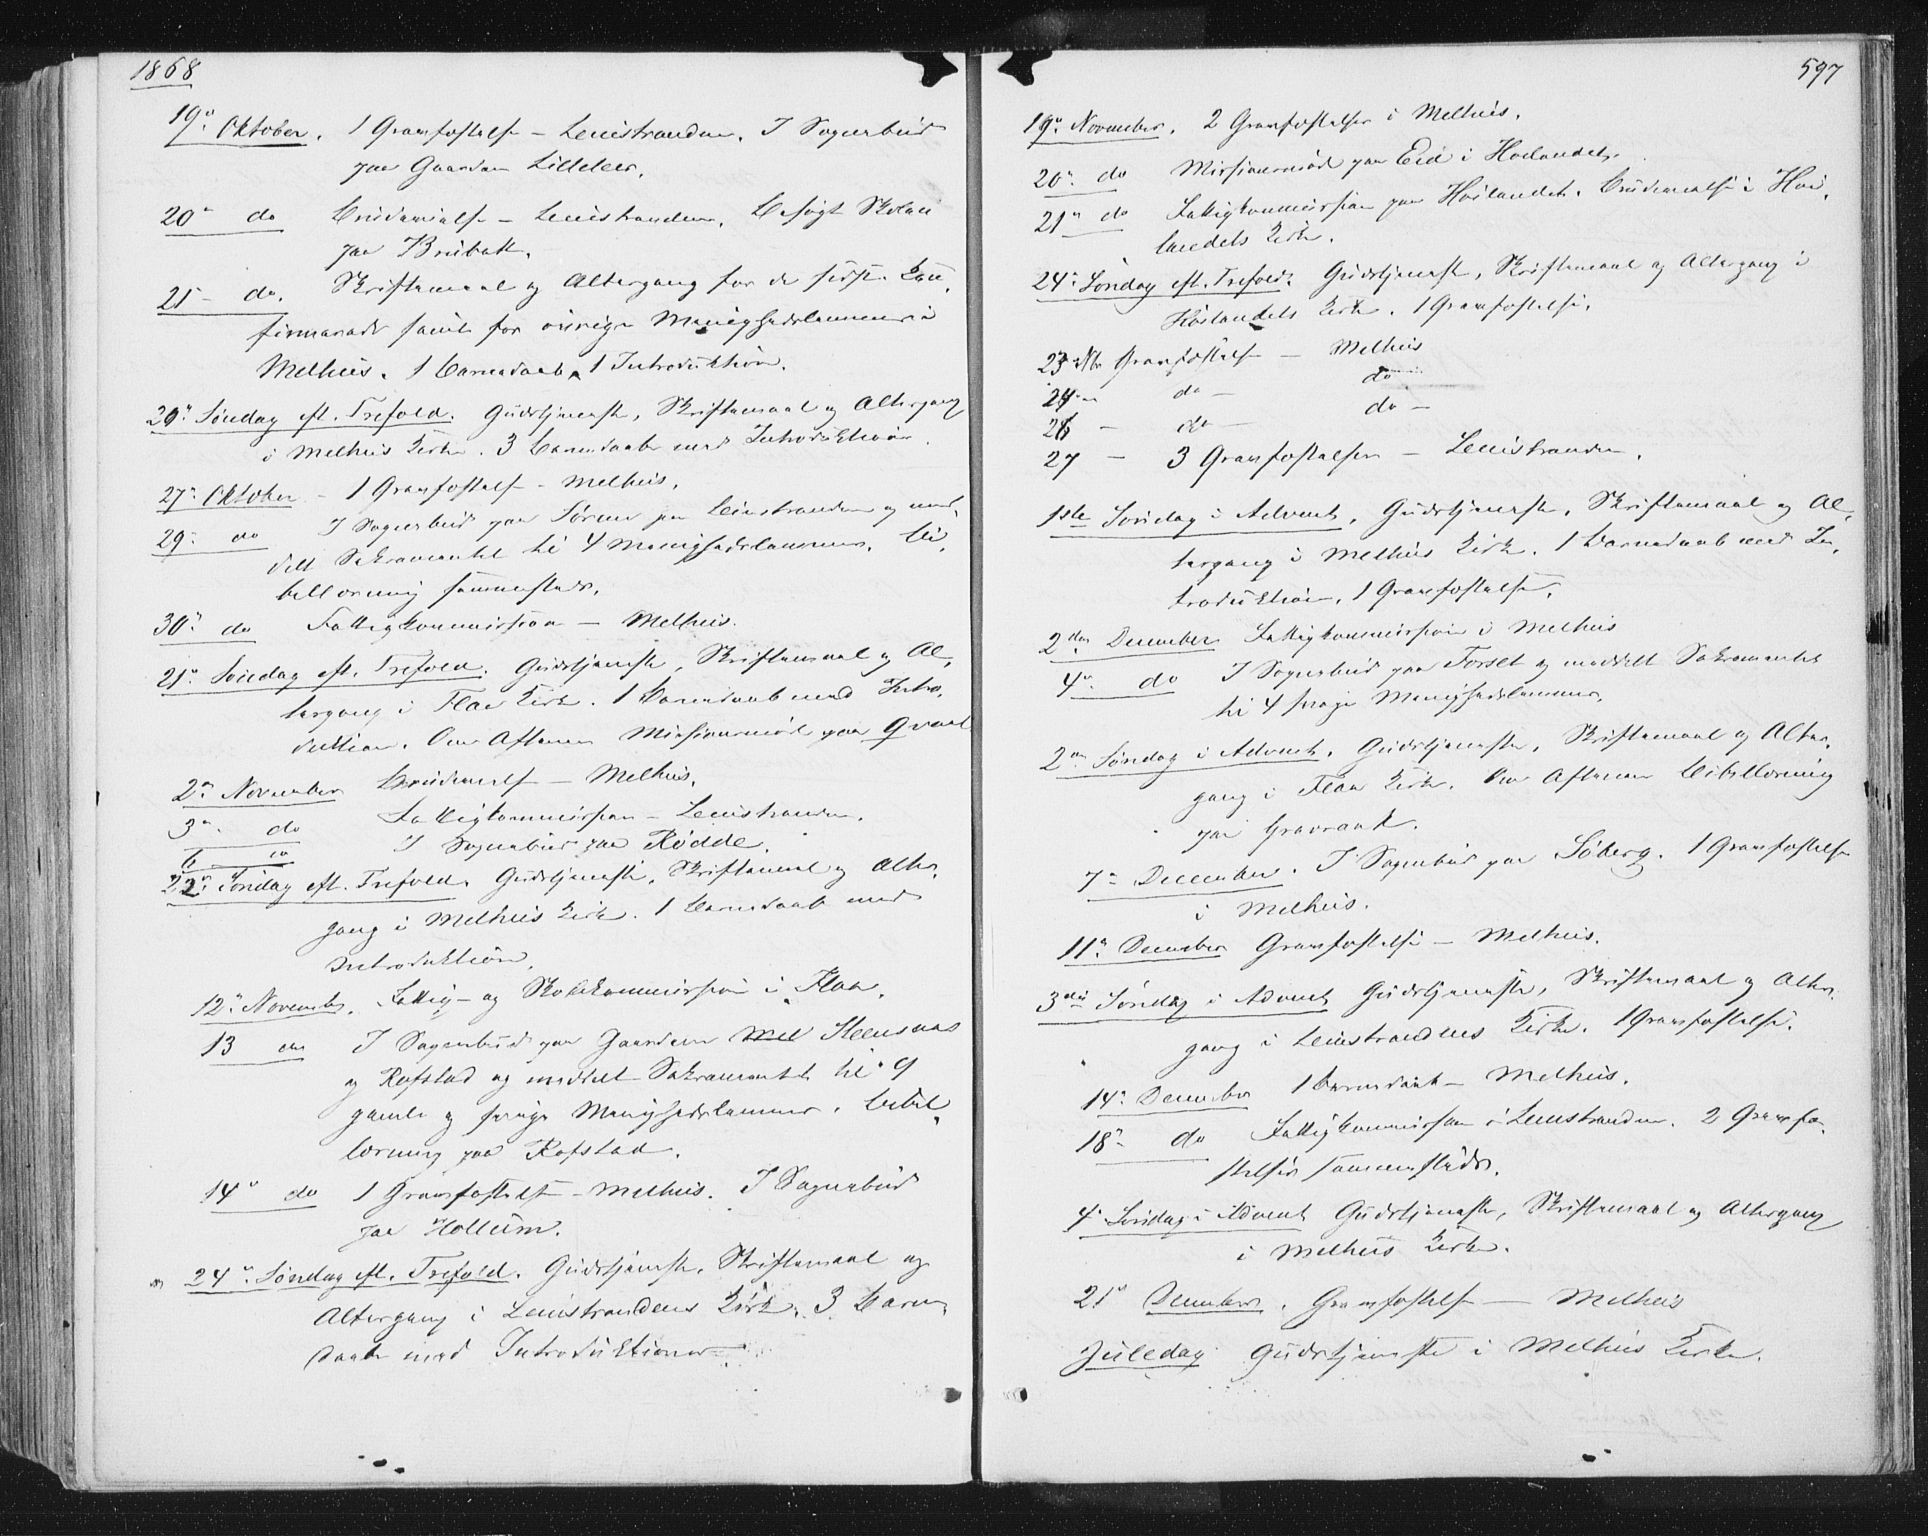 1868
19de Oktober. 1 Gravfæstelse – Leinstranden. I Sognebud
paa Gaarden Lilleler.
20de do Brudevielse – Leinstranden. Besøgt Skolen
paa Brubak.
21 – do. Skriftemaal og Altergang for de sidst Con,
firmerede samt for øvrige Menighedslemmer i
Melhus. 1 Barnedaab, 1 Introduktion.
20de Søndag eft. Trefold. Gudstjeneste, Skriftemaal og Altergang
i Melhus Kirke. 3 Barnedaabe med Introduktion.
27de Oktober – 1 Gravfæstelse – Melhus.
29de do I Sognebud paa paa Leinstranden og med,
delt Sakramentet til 4 Menighedslemmer. Bi,
bellæsning sammesteds.
30te do Fattigkommission – Melhus.
21de Søndag eft. Trefold. Gudstjeneste, Skriftemaal og Al,
tergang i Flaa Kirke. 1 Barnedaab med Intro,
duktion. Om Aftenen Missionsmøde paa Qvaal
2den November Brudevielse – Melhus.
3de do Fattigkommission – Leinstranden.
6 do I Sognebud paa Rødde.
22de Søndag eft. Trefold. Gudstjeneste, Skriftemaal og Alter,
gang i Melhus Kirke. 1 Barnedaab med
Introduktion.
12te November. Fattig- og Skolekommission i Flaa.
13 do I Sognebud paa Gaardene Steensaas
og Rofstad og meddelt Sakramentet til 9
gamle og svage Menighedslemmer. Bibel,
læsning paa Rofstad.
14de do 1 Gravfæstelse – Melhus. I Sognebud
paa Hollum.
24de Søndag eft. Trefold. Gudstjeneste, Skriftemaal og
Altergang i Leinstrandens Kirke. 3 Barne,
daabe med Introduktioner
597
19de November. 2 Gravfæstelser i Melhus.
20de do Missionsmøde paa Eid i Høilandet.
21de do Fattigkommission paa Høilandet. Brudevielse i Høi,
landets Kirke.
24de Søndag eft. Trefold. Gudstjeneste, Skriftemaal og Altergang i
Høilandets Kirke. 1 Gravfæstelse.
23 Nbr Gravfæstelse – Melhus
24 – do – do
26 – do – do –
27 – 3 Gravfæstelser – Leinstranden.
1ste Søndag i Advent. Gudstjeneste, Skriftemaal og Al,
tergang i Melhus Kirke. 1 Barnedaab med In,
troduktion. 1 Gravfæstelse.
2den December Fattigkommission i Melhus
4de do I Sognebud paa Forset og meddelt Sakramentet
til 4 svage Menighedslemmer.
2den Søndag i Advent. Gudstjeneste, Skriftemaal og Alter,
gang i Flaa Kirke. Om Aftenen Bibellæsning
paa Gravraak.
7de December. I Sognebud paa Søberg. 1 Gravfæstelse
i Melhus.
11te December Gravfæstelse – Melhus.
3die Søndag i Advent Gudstjeneste, Skriftemaal og Alter,
gang i Leinstrandens Kirke. 1 Gravfæstelse.
14de December 1 Barnedaab – Melhus.
18de do Fattigkommission i Leinstranden. 2 Gravfæ,
stelser sammesteds.
4de Søndag i Advent Gudstjeneste, Skriftemaal og Altergang
i Melhus Kirke.
21de December. Gravfæstelse – Melhus
Juledag Gudstjeneste i Melhus Kirke.